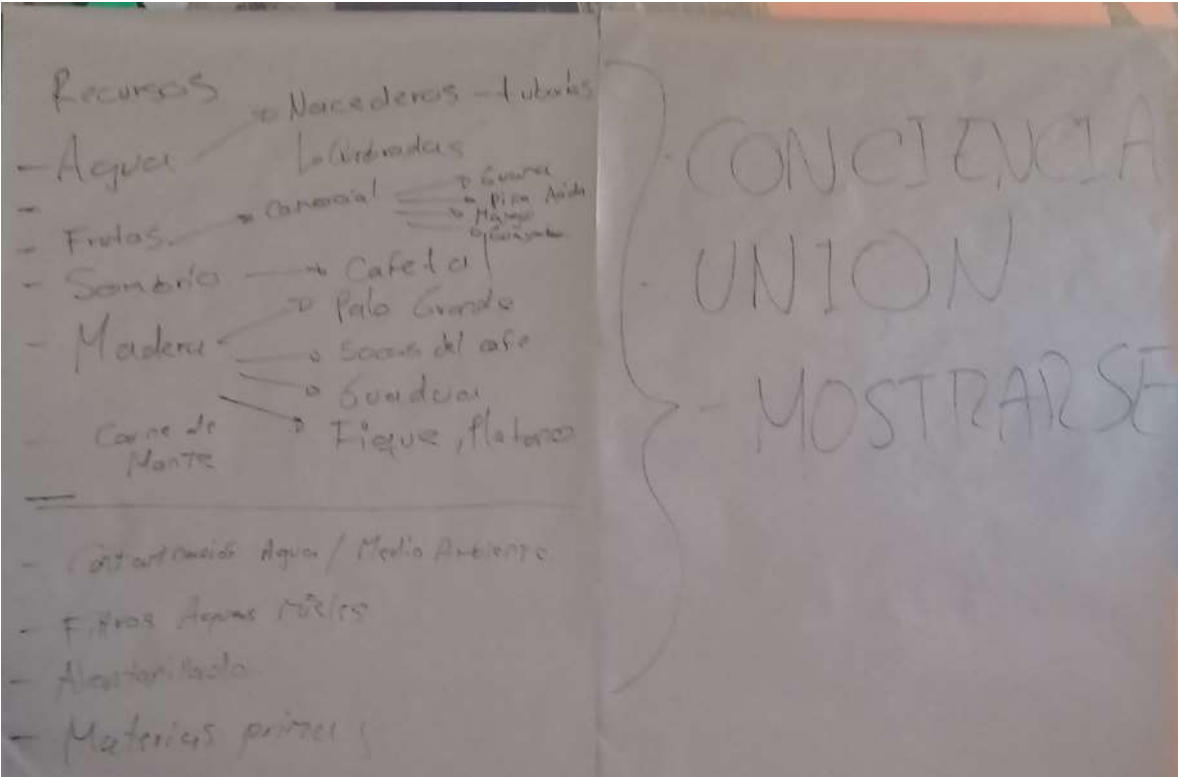 Recursos
- Agua → Nacederos - tuberías
↳ Quebradas
-
- Frutas → Comercial → Guama
→ Piña Ácida
→ Mango
→ Guayaba
- Sombrío → Cafetal
- Madera → Palo Grande
→ Socas del cafe
→ Guadua
→ Fique, Platano
- Carne de
Monte
- Contaminación Agua / Medio Ambiente
- Filtros Aguas Mieles
- Alcantarillado
- Materias primas
- CONCIENCIA
- UNION
- MOSTRARSE